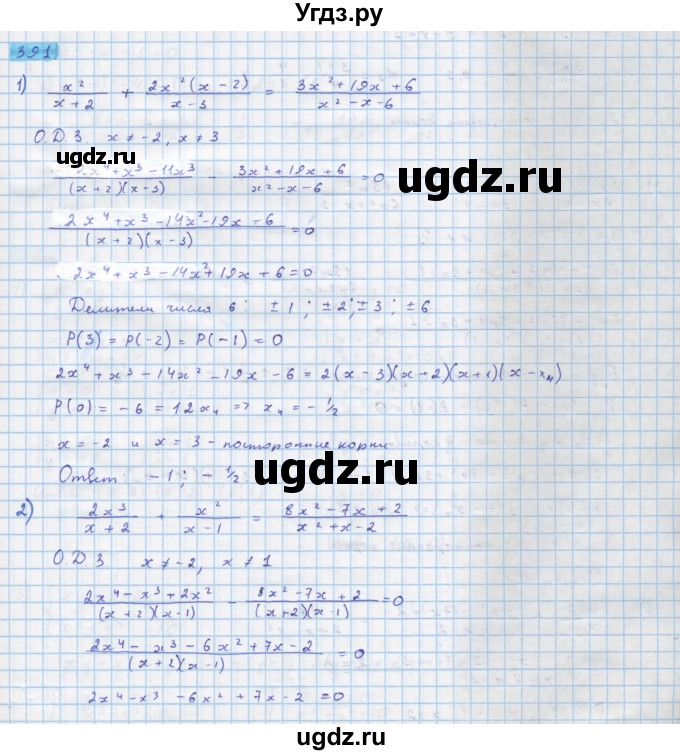 Угдз.ру
391
1) x²/(x+2) + 2x²(x-2)/(x-3) = (3x²+19x+6)/(x²-x-6)
О.Д.З. x≠-2, x≠3
угдз.ру
2x⁴+x³-11x³/(x+2)(x-3) - (3x²+19x+6)/(x²-x-6) = 0
ugdz.ru
(2x⁴+x³-14x²-19x-6)/(x+2)(x-3) = 0
угдз.ру
2x⁴+x³-14x²+19x+6=0
Делители числа 6: ±1; ±2; ±3; ±6
P(3) = P(-2) = P(-1) = 0
ugdz.ru
2x⁴+x³-14x²-19x-6 = 2(x-3)(x+2)(x+1)(x-x₄)
P(0) = -6 = 12x₄ => x₄ = -1/2
угдз.ру
x=-2 и x=3 - посторонние корни
Ответ: -1; -1/2
ugdz.ru
2) 2x³/(x+2) + x²/(x-1) = (8x²-7x+2)/(x²+x-2)
О.Д.З x≠-2, x≠1
угдз.ру
(2x⁴-x³+2x²)/(x+2)(x-1) - (8x²-7x+2)/(x+2)(x-1) = 0
ugdz.ru
(2x⁴-x³-6x²+7x-2)/(x+2)(x-1) = 0
2x⁴-x³-6x²+7x-2=0
угдз.ру
ugdz.ru